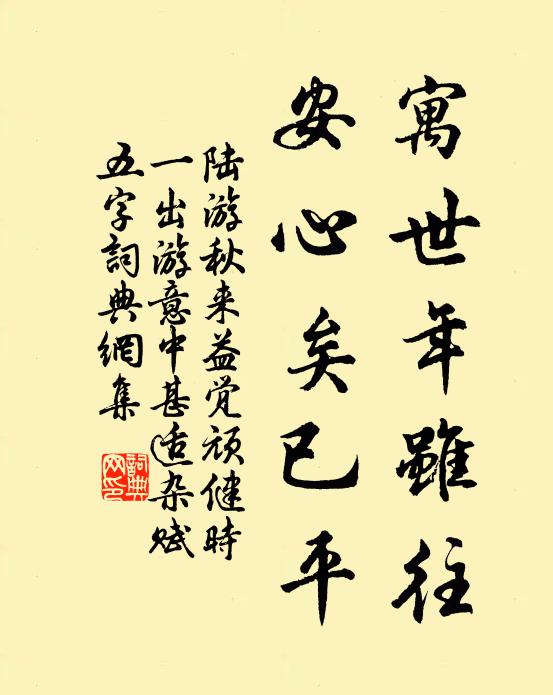 寓世年雖往
安心矣已平
陆游秋来益觉顽健时
一出游意中甚适杂赋
五字詞典網集
詞典
网印